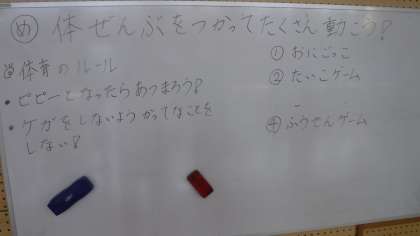 め 体ぜんぶをつかってたくさん動こう!
体育のルール
・ピピーとなったらあつまろう!
・ケガをしないようかってなことを
しない!
① おにごっこ
② たいこゲーム
④ ふうせんゲーム